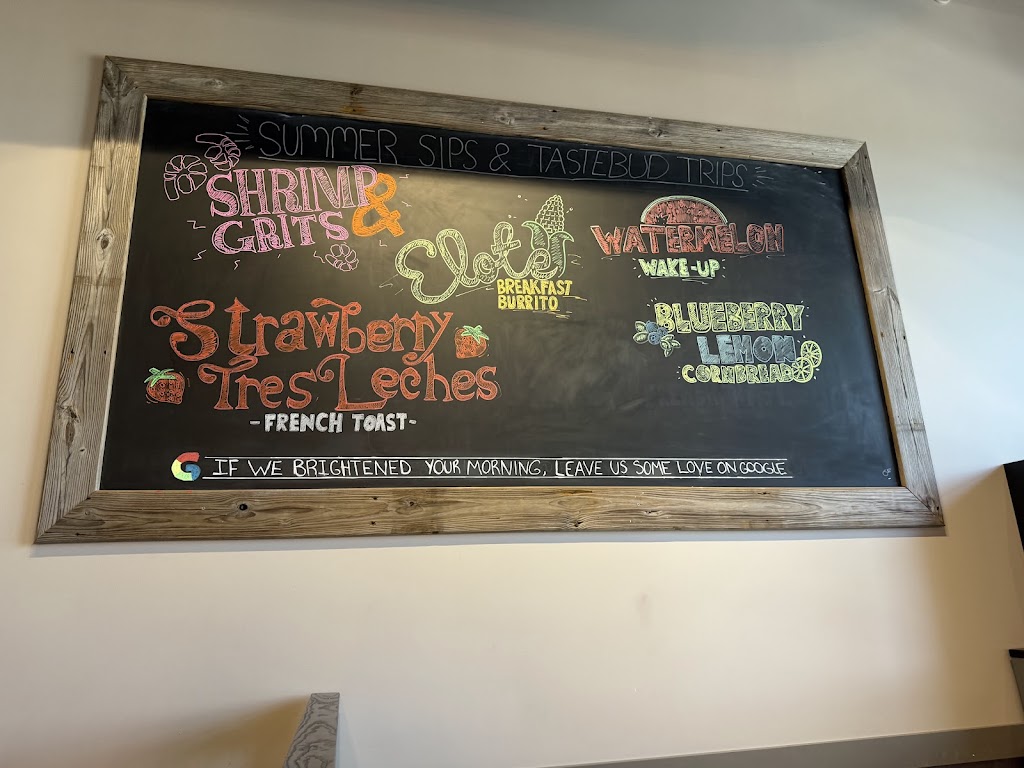 SUMMER SIPS & TASTEBUD TRIPS
SHRIMP &
GRITS
Elote
BREAKFAST
BURRITO
WATERMELON
WAKE-UP
Strawberry
Tres Leches
-FRENCH TOAST-
BLUEBERRY
LEMON
CORNBREAD
G IF WE BRIGHTENED YOUR MORNING, LEAVE US SOME LOVE ON GOOGLE